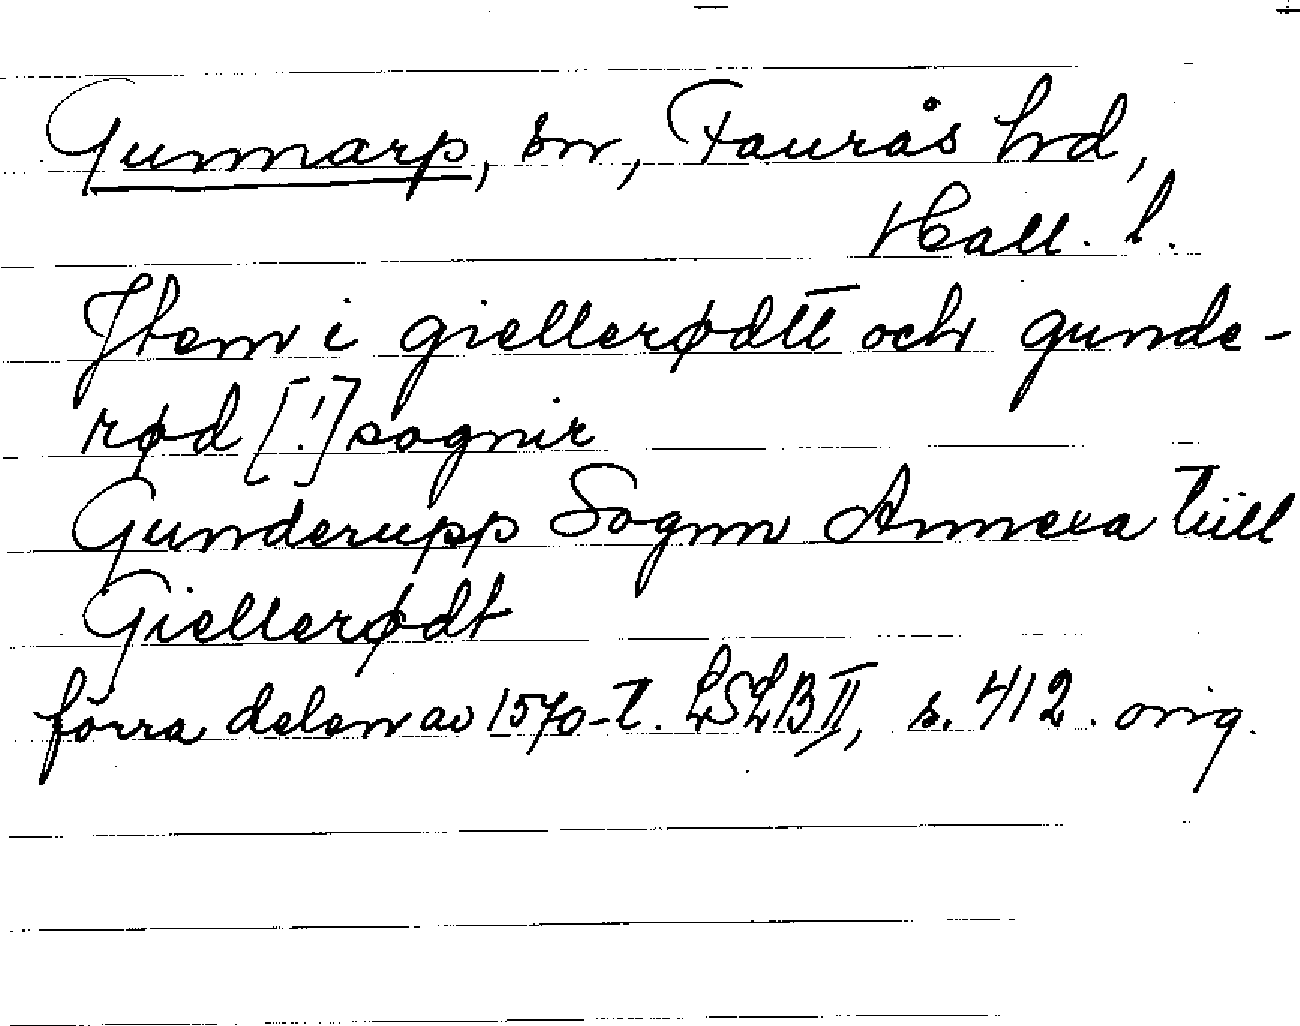 Gunnarp, sn, Faurås hd,
Hall. l.
Item i giellerødtt och gunde-
rød [!] sognir
Gunderupp Sognn Annexa tiill
Giellerødt
förra delen av 1570-t. LSLB II, s. 412. orig.